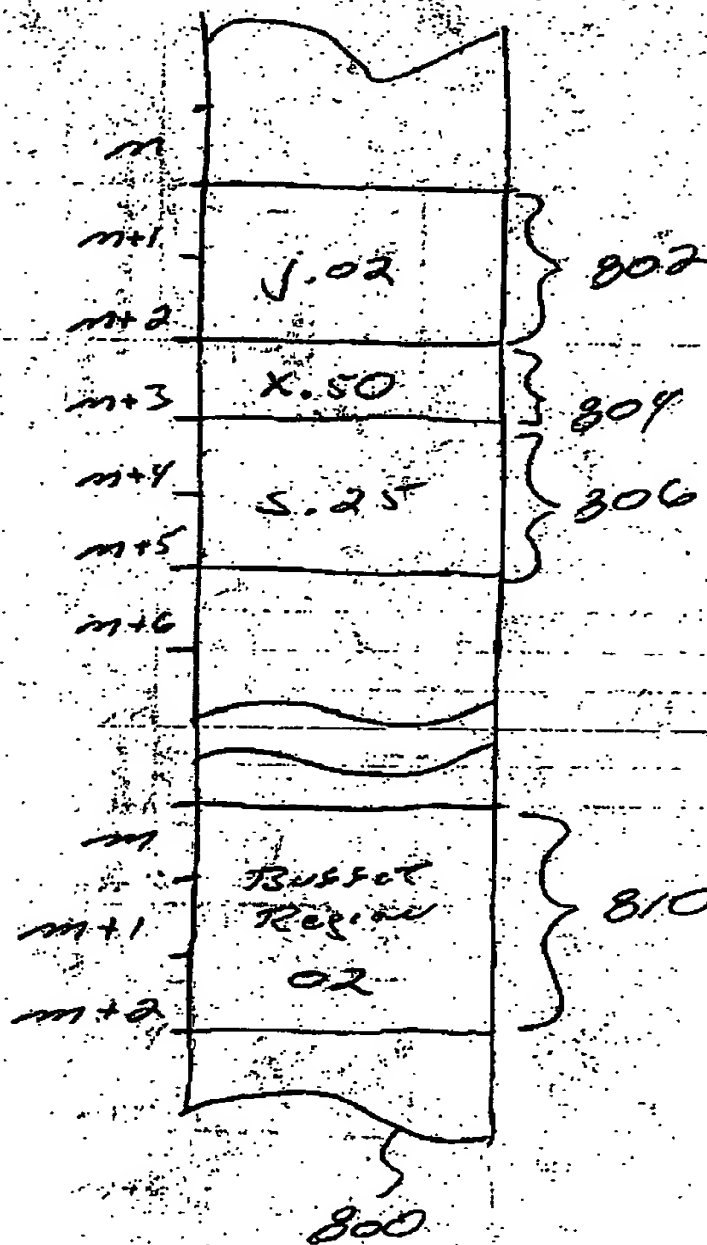 n
n+1
J.02
802
n+2
X.50
n+3
804
n+4
S.25
806
n+5
n+6
m
Buffet
Region
810
m+1
02
m+2
800